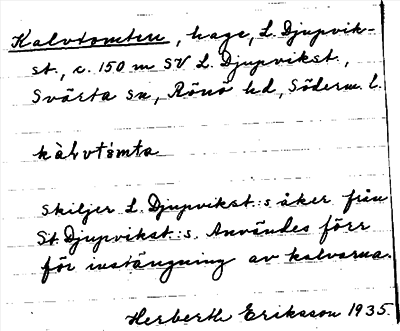 Kalvtomten, hage, L. Djupvik-
st., c. 150 m SV L. Djupvikst.,
Svärta sn, Rönö hd, Söderm. l.
kàlvtòmta
skiljer L. Djupvikst.:s åker från
St. Djupvikst.:s. Användes förr
för instängning av kalvarna.
Herberth Eriksson 1935.